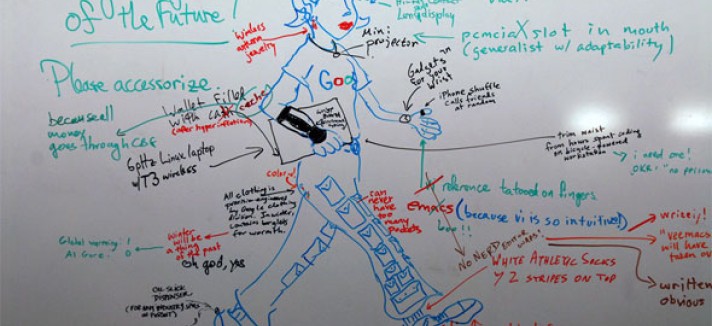 of the Future!
Please accessorize
because all
money
goes through CBG
Wireless
jewelry
display
Mini
projector
pcmciaX slot in mouth
(generalist w/ adaptability)
Gadgets "n
for your
Wrist
iPhone shuffle
calls friends
at random
Goo
Wallet filled
with cash cache
(after hyperinflation)
6pHz Linux laptop
w/ T3 wireless
trim waist
from hours spent coding
on bicycle-powered
workstation
i need one!
color!
All clothing is
by Google clothing
division. In winter,
contains
for warmth.
can
never
have
too
many
pockets
reference tatooed on fingers
emacs (because vi is so intuitive)
boo!!
NO NERD EDITOR WARS!
write ij!
"veemacs
will have
taken over
written
obvious
Global warming!
Al Gore!
winter
will be
a thing
of the past
oh god, yes
WHITE ATHLETIC SOCKS
2 STRIPES ON TOP
OIL SLICK
DISPENSER